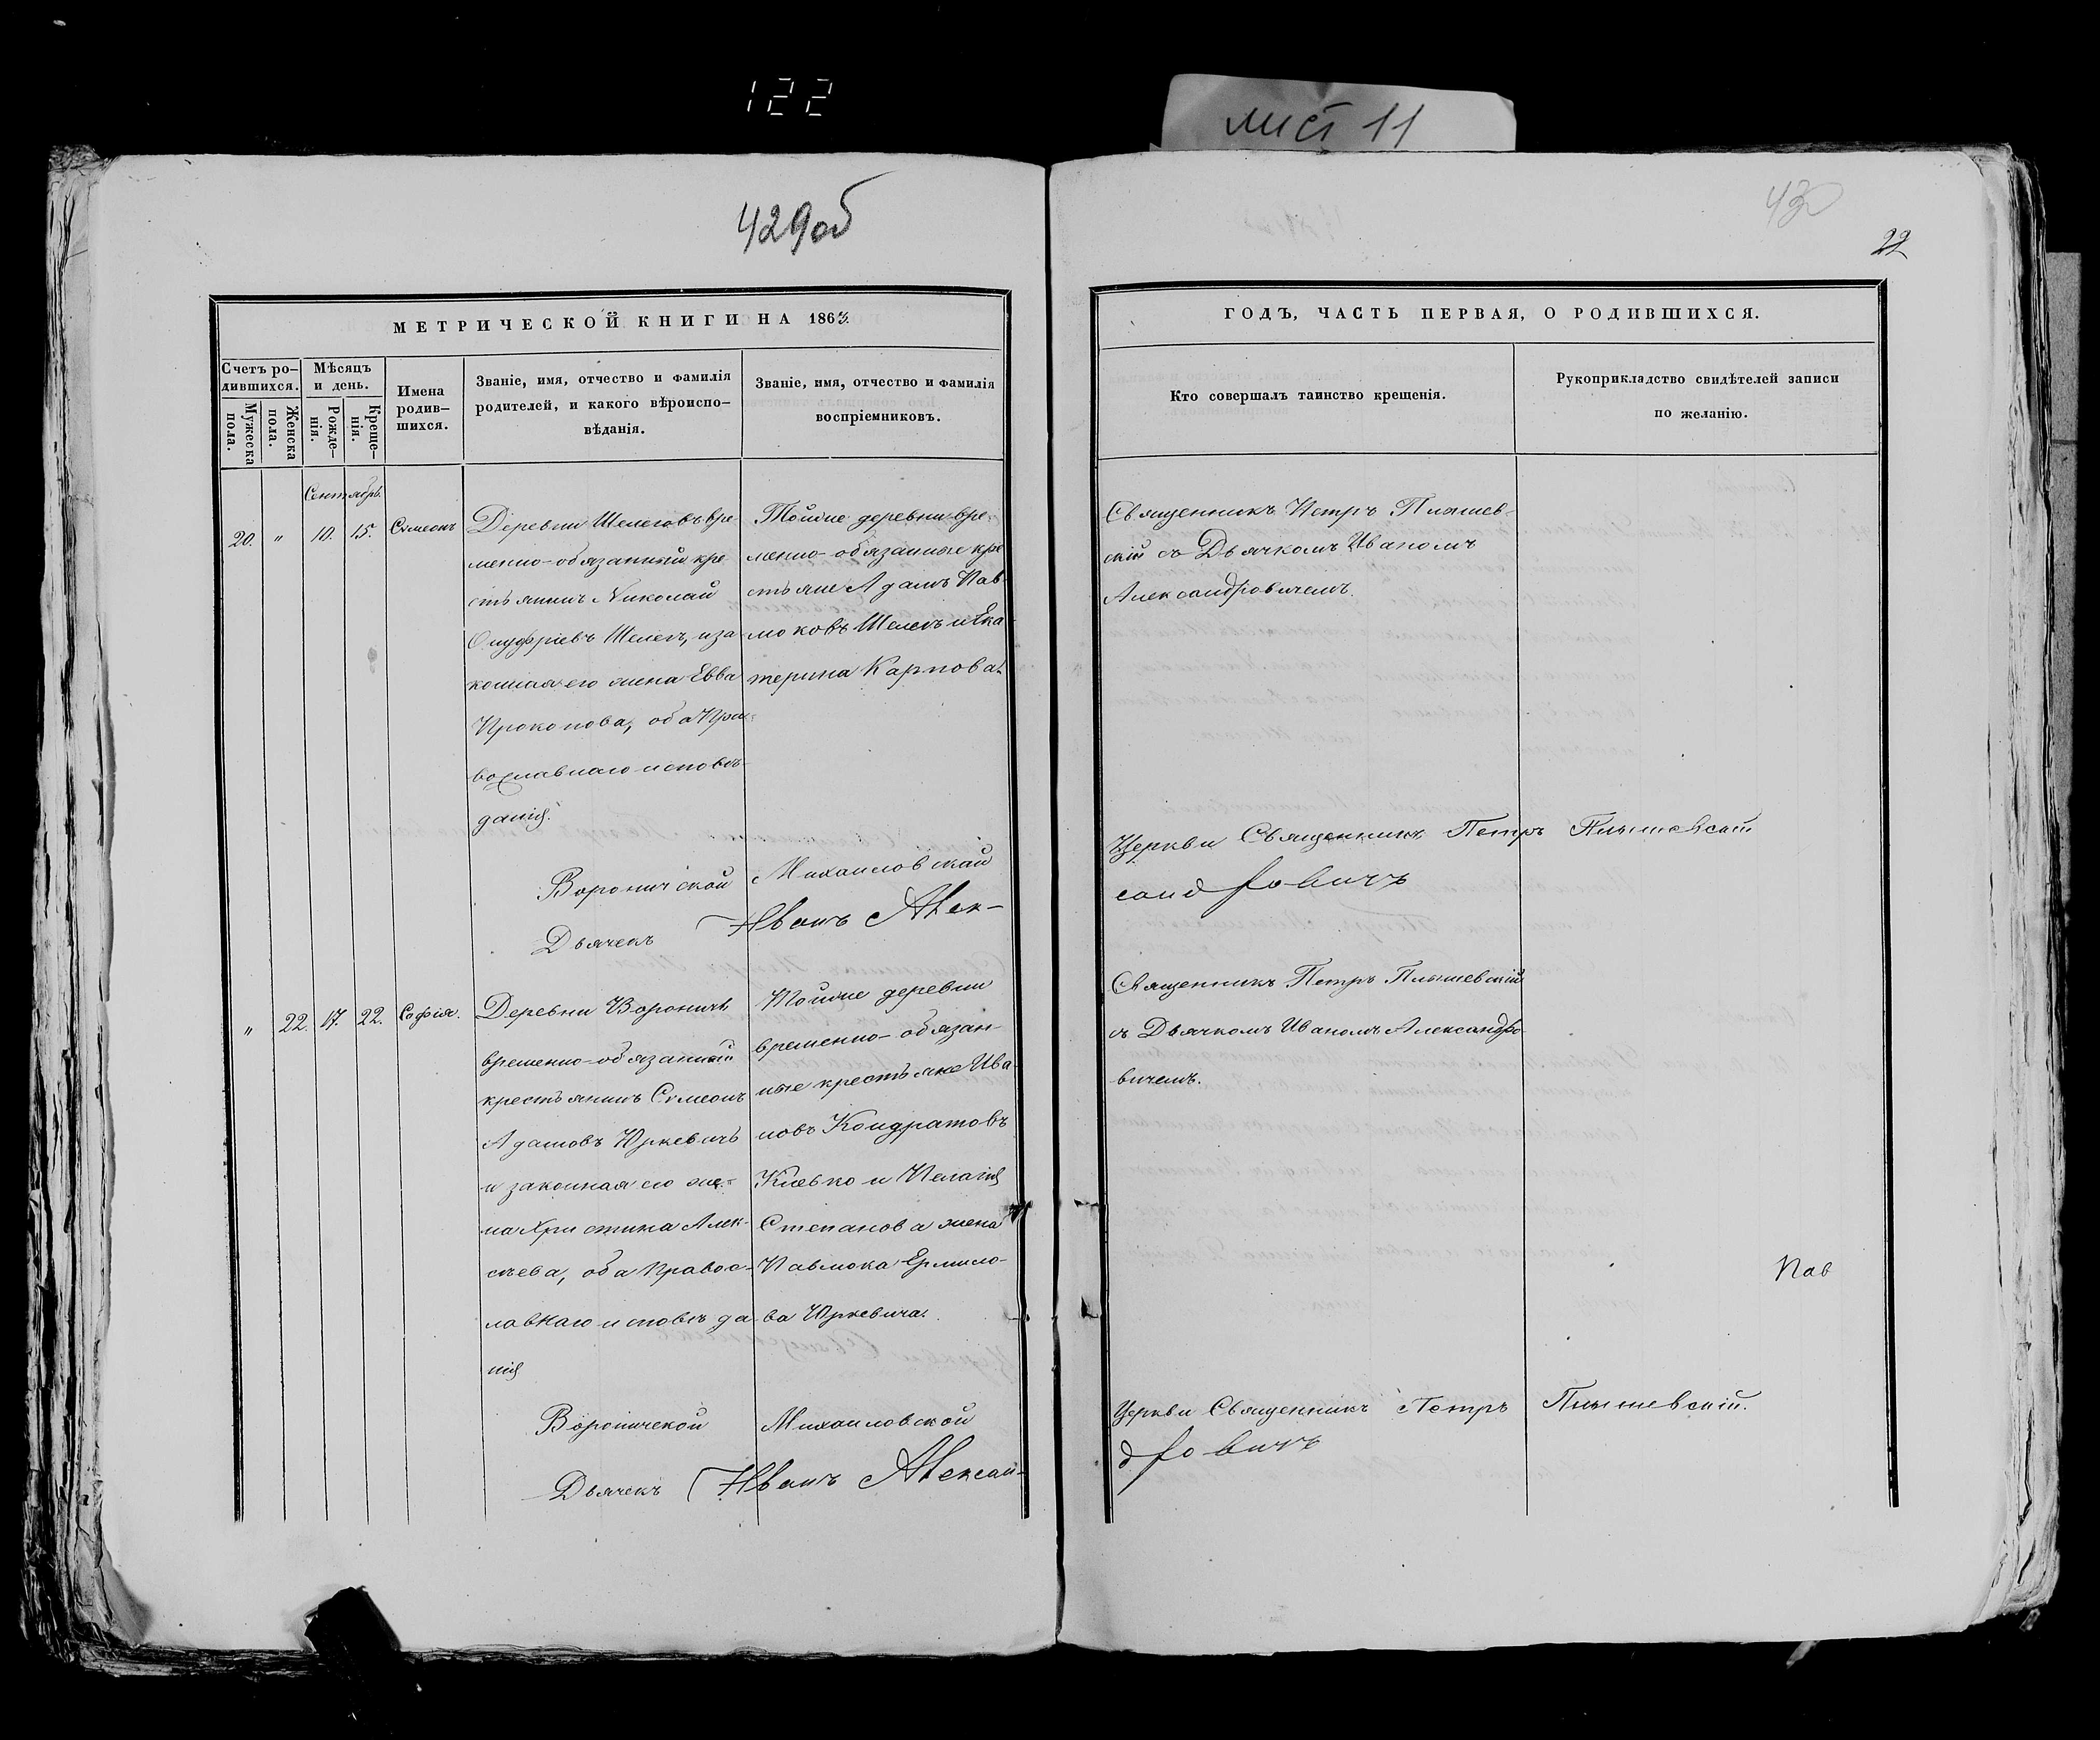 122
лист 11
429об
430
22
МЕТРИЧЕСКОЙ КНИГИ НА 1863
ГОДЪ, ЧАСТЬ ПЕРВАЯ, О РОДИВШИХСЯ.
Счетъ ро-
дившихся.
Мужеска
пола.
Женска
пола.
Мѣсяцъ
и день.
Рожде-
нія.
Креще-
нія.
Имена
родив-
шихся.
Званіе, имя, отчество и фамилія
родителей, и какого вѣроиспо-
вѣданія.
Званіе, имя, отчество и фамилія
воспріемниковъ.
Кто совершалъ таинство крещенія.
Рукоприкладство свидѣтелей записи
по желанію.
Сентябрь.
20. " 10. 15. Сѵмеонъ
Деревни Шелеговъ вре-
менно-обязанный кре
стьянинъ Николай
Онуфріевъ Шелегъ, и за
конная его жена Евва
Прокопова, оба Пра-
вославнаго исповѣ-
данія.
Тойже деревни вре-
менно-обязанные кре
стьяне Адамъ Пав
моковъ Шелегъ и Ека
терина Карпова.
Священникъ Петръ Плышев-
скій съ Дьячкомъ Иваномъ
Александровичемъ.
Вороничской Михайловской
Церкви Священникъ Петръ Плышевскій
Дьячекъ Иванъ Алек-
сандровичъ
" 22. 17. 22. Софія.
Деревни Вороничъ
временно-обязанный
крестьянинъ Сѵмеонъ
Адамовъ Юркевичъ
и законная его же-
на Христина Алек-
сѣева, оба Правос-
лавнаго исповѣда
нія
Тойже деревни
временно-обязан-
ные крестьяне Ива
новъ Кондратовъ
Клевко и Пелагія
Степанова жена
Павлюка Ермило-
ва Юркевича.
Священникъ Петръ Плышевскій
съ Дьячкомъ Иваномъ Александро-
вичемъ.
Пав
Вороничской Михайловской
Церкви Священникъ Петръ Плышевскій.
Дьячекъ Иванъ Алексан-
дровичъ